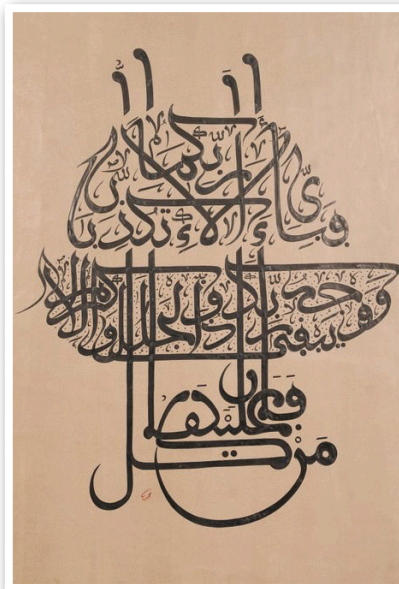 كُلُّ مَنْ عَلَيْهَا فَانٍ
وَيَبْقَىٰ وَجْهُ رَبِّكَ ذُو الْجَلَالِ وَالْإِكْرَامِ
فَبِأَيِّ آلَاءِ رَبِّكُمَا تُكَذِّبَانِ